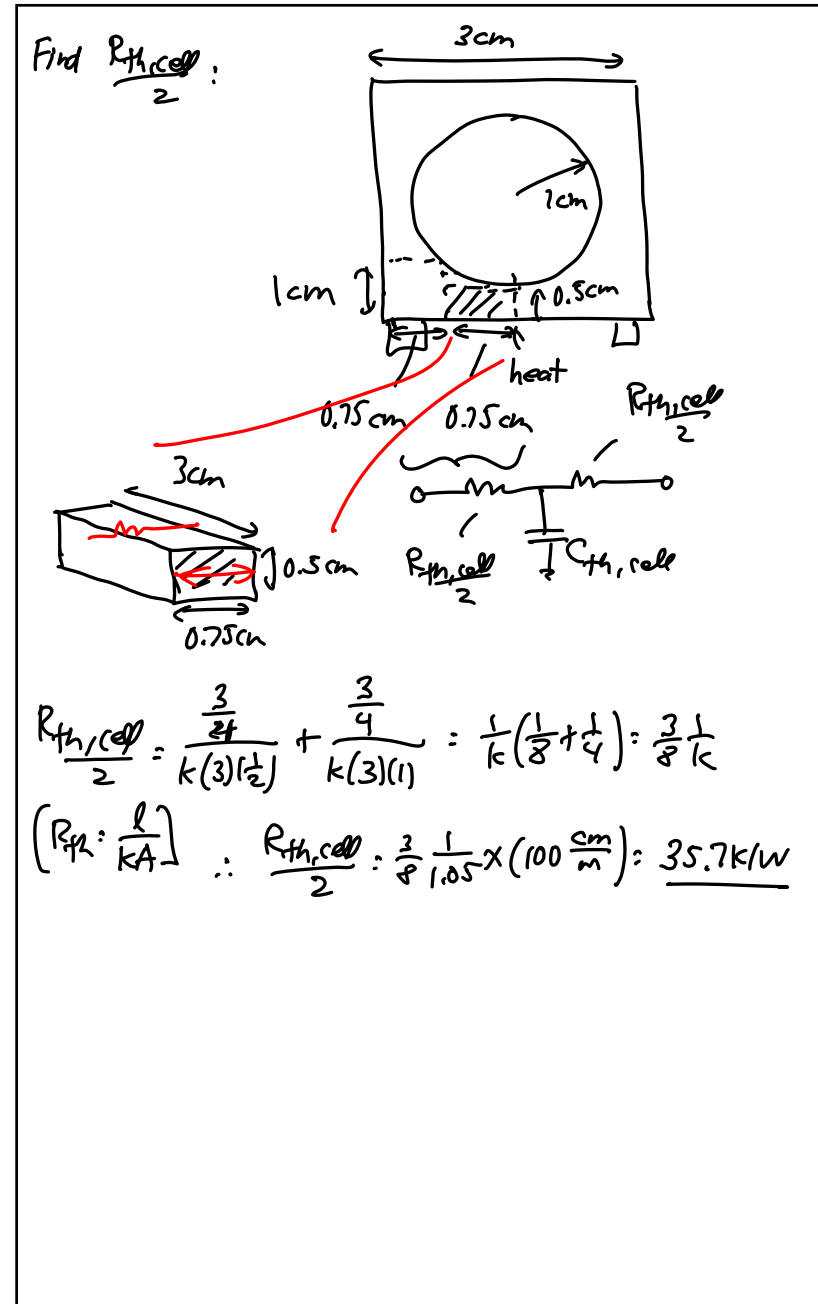 Find R_th,cell/2 :
3cm
1cm
1cm
0.5cm
heat
0.75cm 0.75cm
R_th,cell/2
3cm
0.5cm
0.75cm
R_th,cell/2
C_th,cell
R_th,cell/2 = (3/4)/(k(3)(1/2)) + (3/4)/(k(3)(1)) = 1/k(1/8+1/4) = 3/8 1/k
[R_th = l/kA] ∴ R_th,cell/2 = 3/8 1/1.05 x (100 cm/m) = 35.7K/W